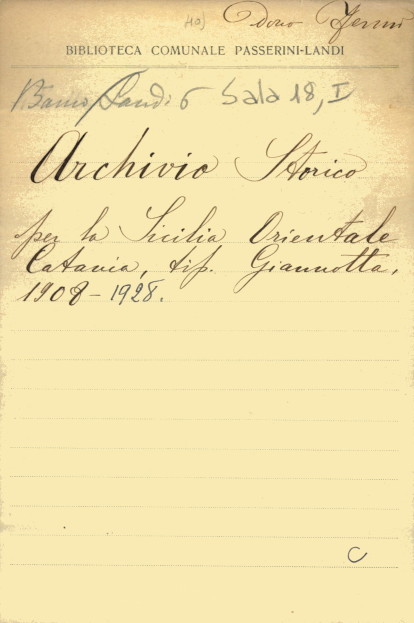 Dono
BIBLIOTECA COMUNALE PASSERINI-LANDI
Landi 6 Sala 18, I
Archivio Storico
per la Sicilia Orientale
Catania, tip. Giannotta,
1908-1928.
C